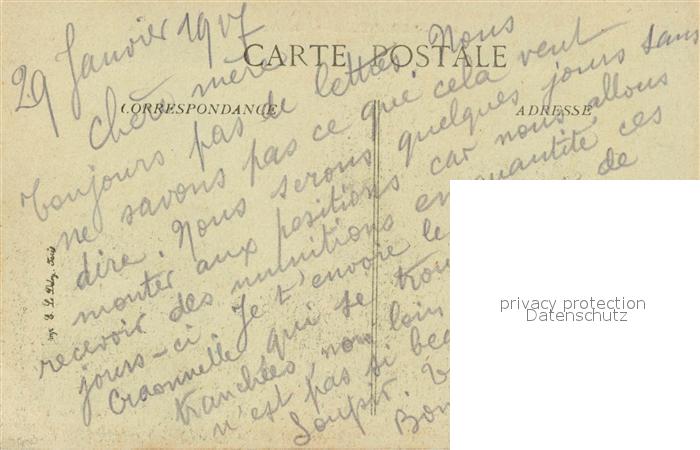 29 Janvier 1917
CARTE POSTALE
CORRESPONDANCE
ADRESSE
Chère mère
Toujours pas de lettres. Nous
ne savons pas ce que cela veut
dire. Nous serons quelques jours sans
monter aux positions car nous allons
recevoir des munitions en quantité ces
jours-ci. Je t'envoie le de
Craonnelle qui se
tranchées non loin
n'est pas si
Soupir.
Imp. E. Le Deley, Paris
privacy protection
Datenschutz